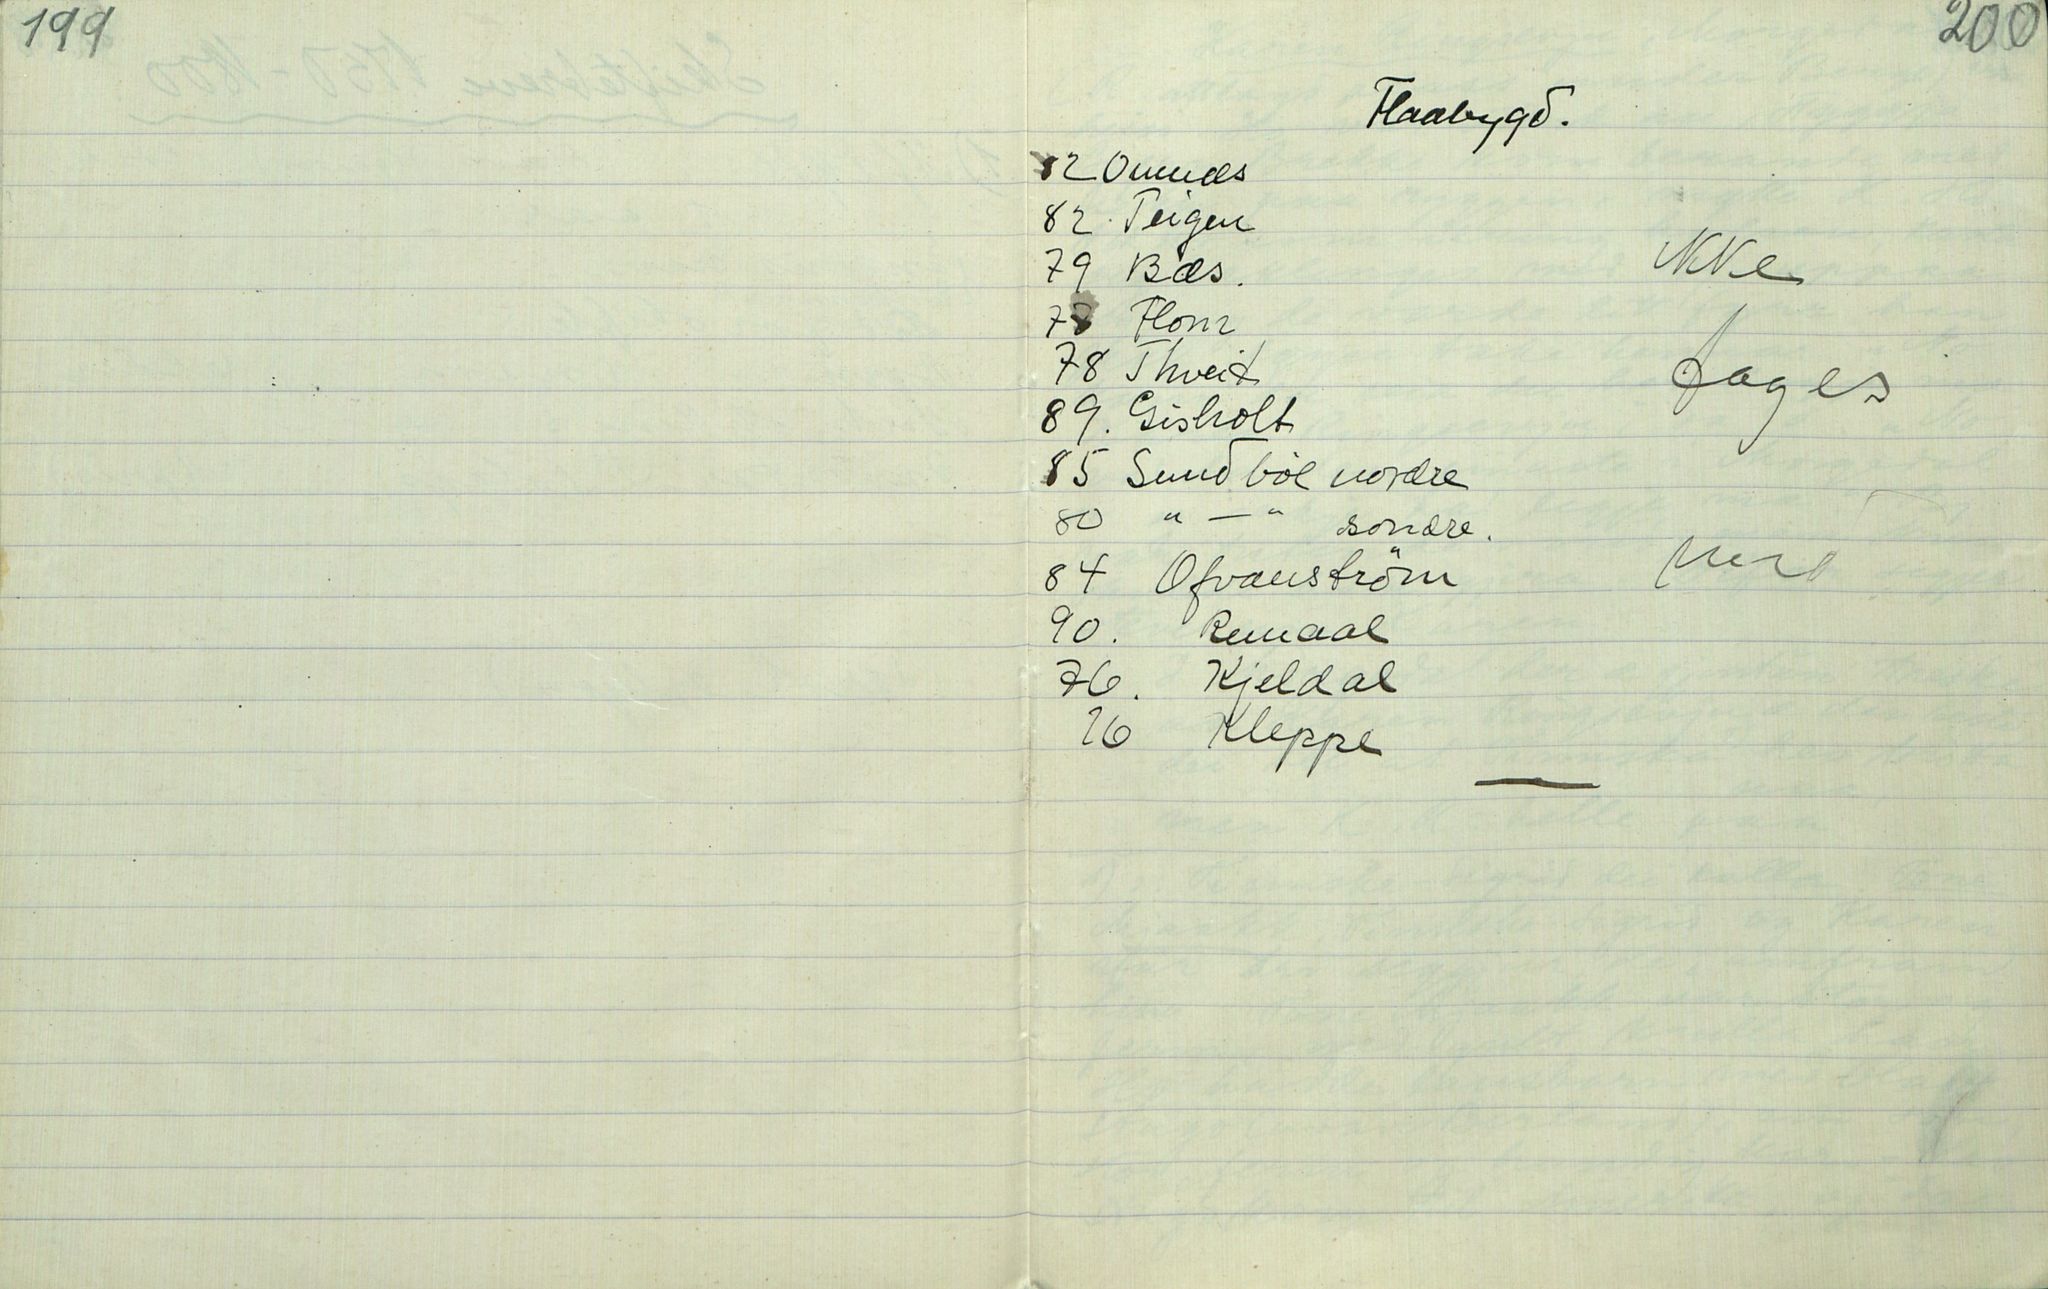 199
200
Flaabygd.
82 Omnæs
82. Teigen
79 Bæs.
78 Flom
78 Thveit
89. Gisholt
85 Sundböl nordre
80 " — " söndre.
84 Ofvanström
90. Remaal
76. Kjeldal
76 Kleppe
Ikke
tages
med